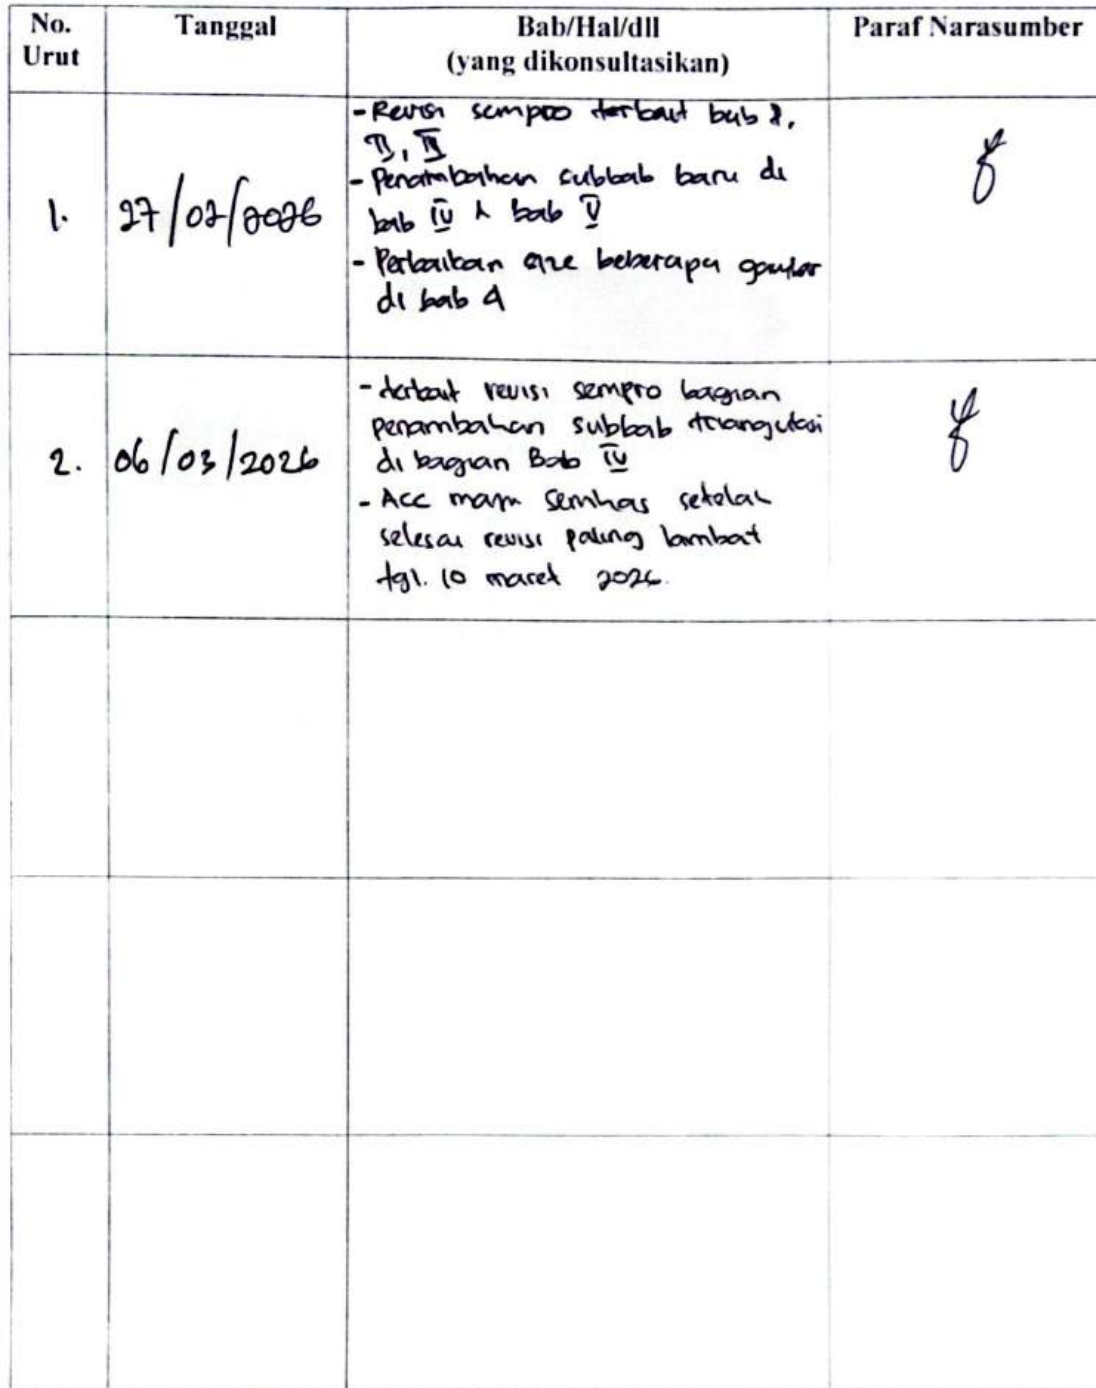 No. Urut
Tanggal
Bab/Hal/dll
(yang dikonsultasikan)
Paraf Narasumber
1.
27/02/2026
- Revisi sempro terkait bab I,
II, III
- Penambahan subbab baru di
bab IV & bab V
- Perbaikan size beberapa gambar
di bab 4
2.
06/03/2026
- terkait revisi sempro bagian
penambahan subbab triangulasi
di bagian Bab IV
- Acc maju semhas setelah
selesai revisi paling lambat
tgl. 10 maret 2026.